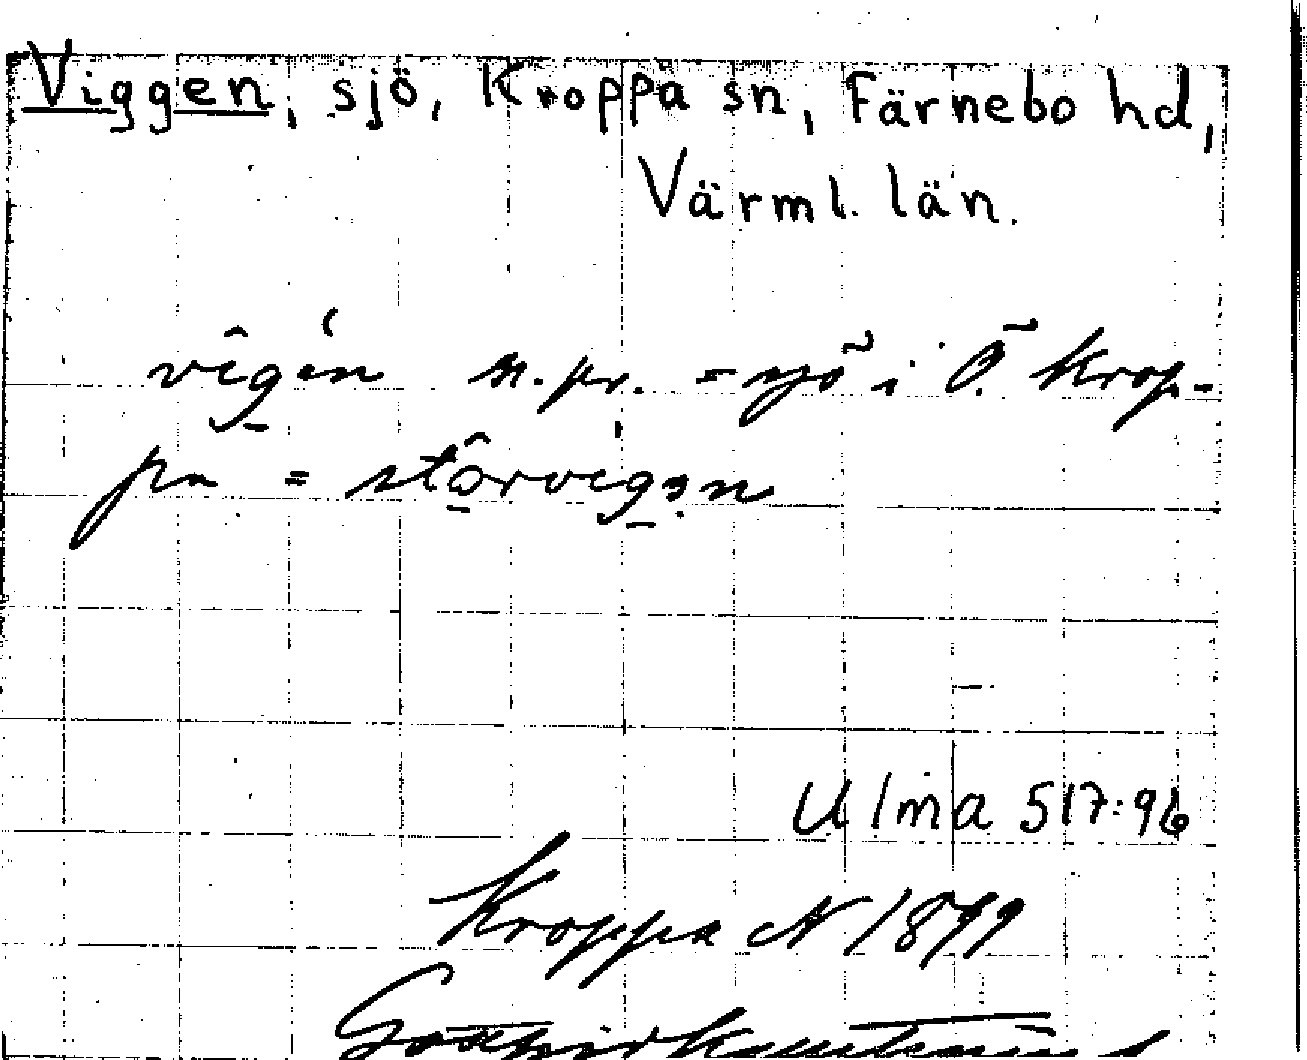 Viggen, sjö, Kroppa sn, Färnebo hd,
Värml. län.
vîgén n. pr. = sjö i Ö. Krop-
pa = stôrvigən
Ulma 517:96
Kroppa N 1899